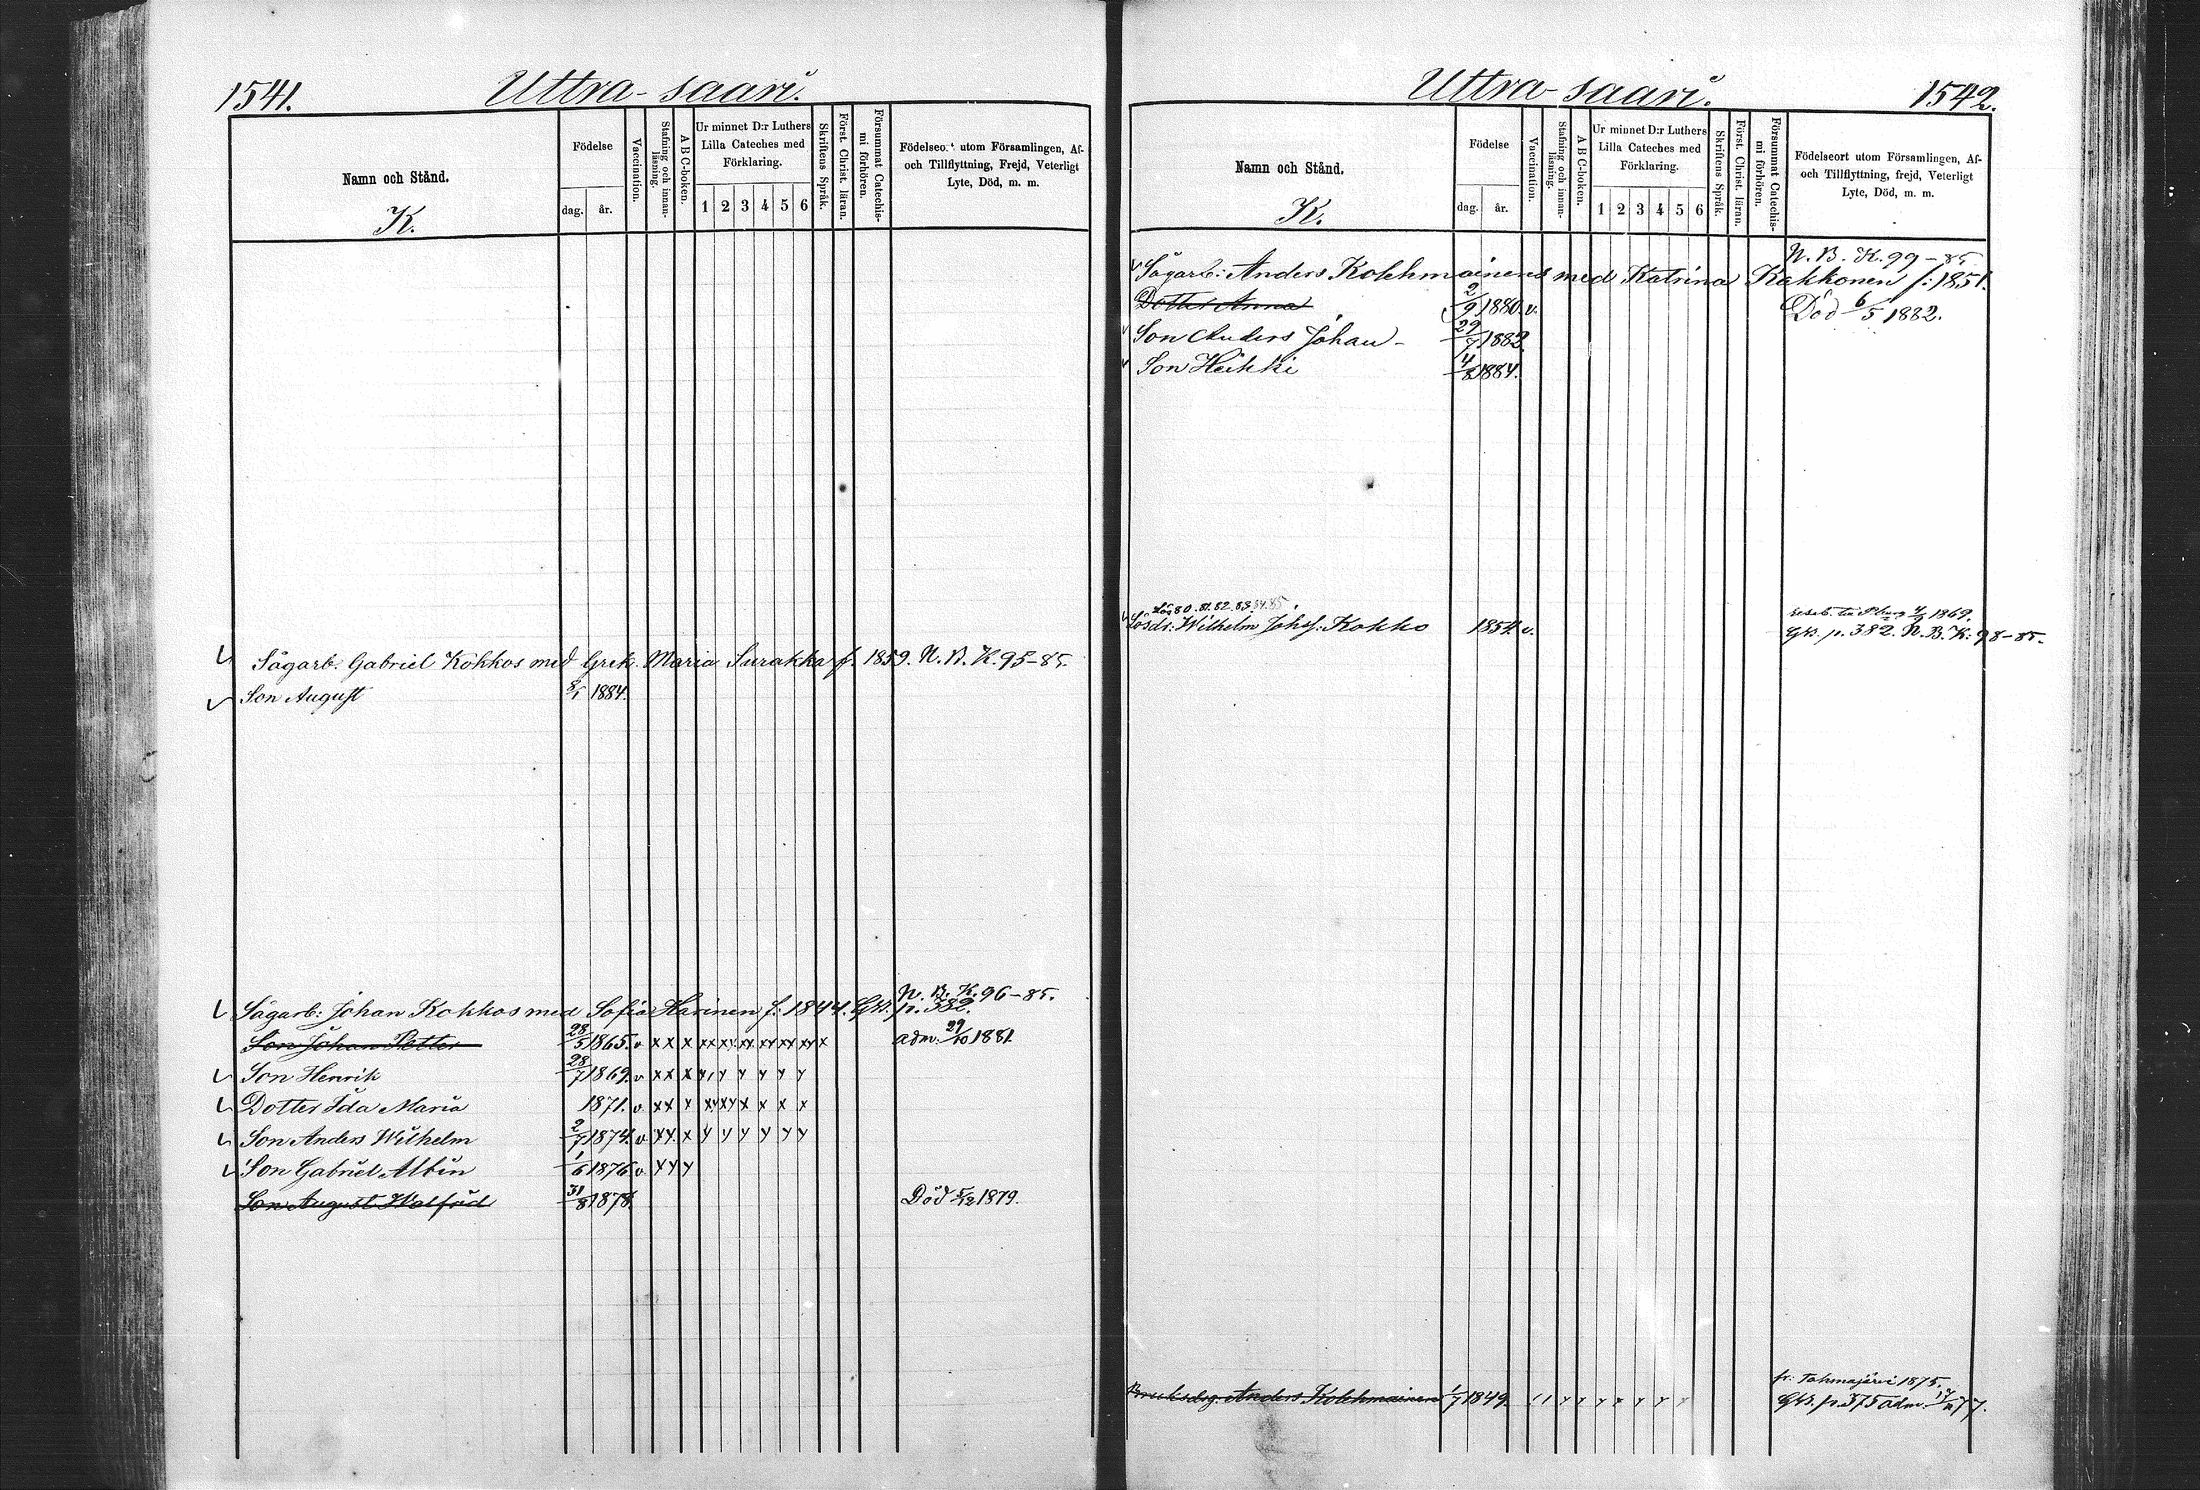 1541.
Uttra-saari.
Namn och Stånd.
K.
Födelse
dag.
år.
Vaccination.
Stafning och innan-
läsning.
ABC-boken.
Ur minnet D:r Luthers
Lilla Cateches med
Förklaring.
1 2 3 4 5 6
Skriftens Språk.
Först. Christ. läran.
Försummat Catechis-
mi förhören.
Födelseort utom Församlingen, Af-
och Tillflyttning, Frejd, Veterligt
Lyte, Död, m. m.
Sågarb. Gabriel Kokkos med Grek. Maria Surakka f. 1859. N. B. K. 95-85.
Son August 1884.
N. B. K. 96-85.
Sågarb: Johan Kokkos med Sofia Harinen f: 1844. Gk. p. 382.
Son Johan Petter 28/5 1865. v x x x xx xx xx xx xx xx x adm. 29/10 1881.
Son Henrik 28/7 1869. v x x x y y y y y y
Dotter Ida Maria 1871. v. x x x xy xy x x x x
Son Anders Wilhelm 2/7 1874. v. y y x y y y y y y
Son Gabriel Albin 1/6 1876 v. y y y
Son August Walfrid 31/8 1878. Död 5/12 1879.
Uttra-saari.
1542.
Namn och Stånd.
K.
Födelse
dag.
år.
Vaccination.
Stafning och innan-
läsning.
ABC-boken.
Ur minnet D:r Luthers
Lilla Cateches med
Förklaring.
1 2 3 4 5 6
Skriftens Språk.
Först. Christ. läran.
Försummat Catechis-
mi förhören.
Födelseort utom Församlingen, Af-
och Tillflyttning, frejd, Veterligt
Lyte, Död, m. m.
N. B. K. 99-85.
Sågarb: Anders Kolehmainens med Katrina Kakkonen f: 1851.
Dotter Anna 2/9 1880. v. Död 6/5 1882.
Son Anders Johan - 29/7 1882.
Son Heikki 4/8 1884.
80. 81. 82. 83. 84. 85. 1869.
Lösdr: Wilhelm Johs: Kokko 1854. v. Gk. p. 382. N. B. K. 98-85.
fr. Tohmajärvi 1875.
Anders Kolehmainen 1/7 1849. Gk. p. 375 adm. 77.